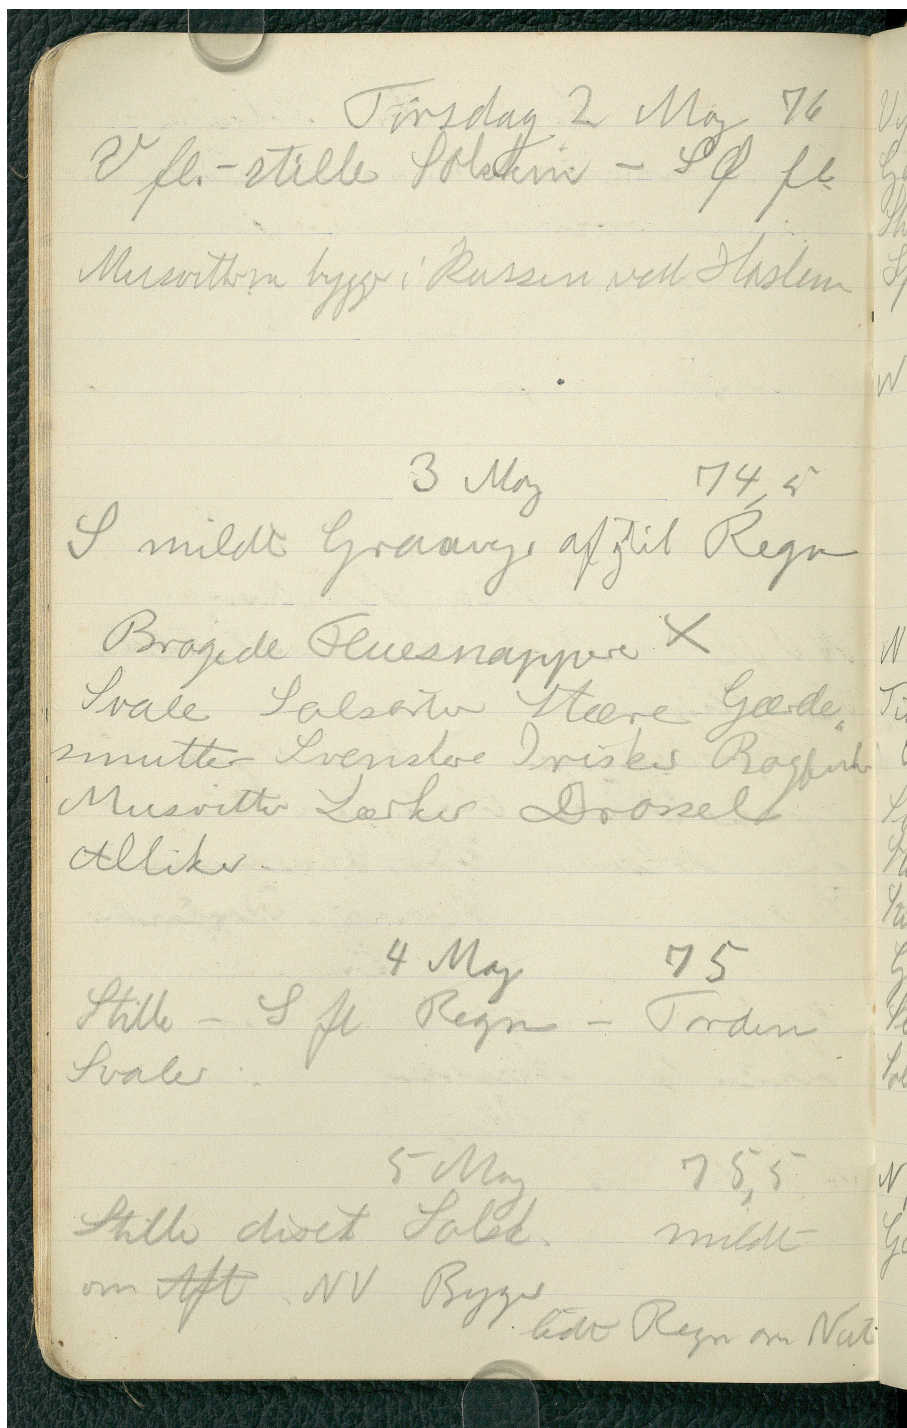 Torsdag 2 May 76
V fl. - stille Solskin - SØ fl.
Musvitterne bygge i Kassen ved Haslerne
3 May 74,5
S mildt Graavejr af og til Regn
Brogede Fluesnappere X
Svale Solsorter Stære Gærde"
smutter Svenskere Irisker Bogfinker
Musvitter Lærker Drossel
Alliker
4 May 75
Stille - S fl Regn - Torden
Svaler
5 May 75,5
Stille diset Solsk. mildt
om Aft NV Byger
lidt Regn om Nat